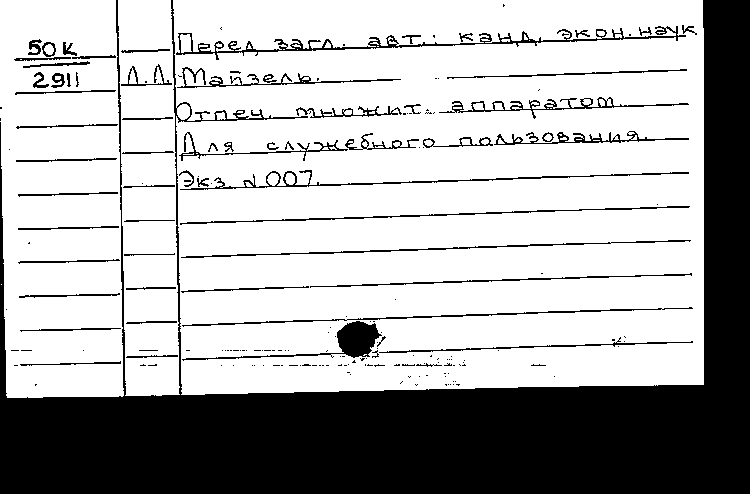 50К Перед загл. авт.: канд. экон. наук
2911 Л.Л. Майзель.
Отпеч. множит. аппаратом.
Для служебного пользования.
Экз. № 007.